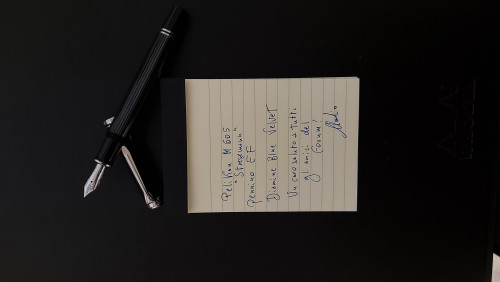 Pelikan M 605
"Stresemann"
Pennino EF
Diamine Blue Velvet
Un caro saluto a tutti
gli amici del
Forum!